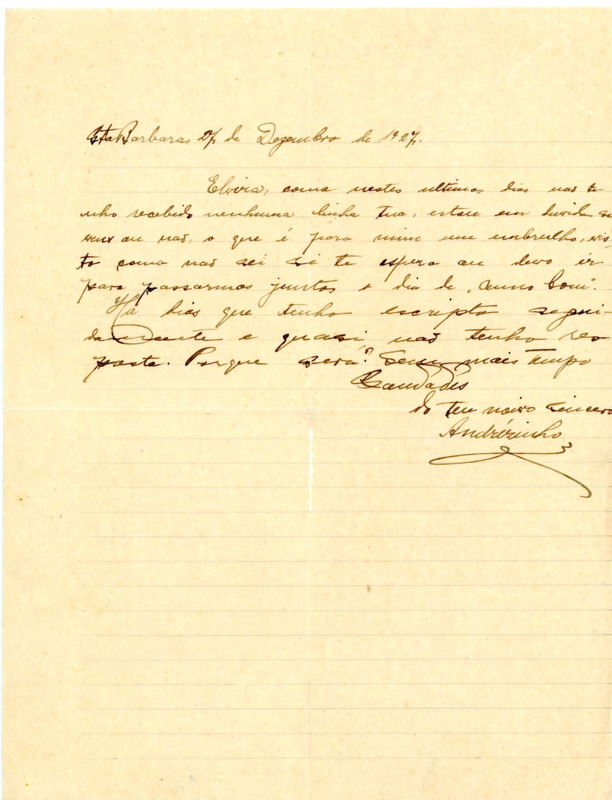 Sta Barbara, 27 de Dezembro de 1927.
Elvira, como nestes ultimos dias não te
nho recebido nenhuma linha tua, estou em duvida se
vens ou não, o que é para mim um embrulho, vis
to como não sei si te espero ou devo ir
para passarmos juntos o dia de "anno bom".
Ha dias que tenho escripto segui-
damente e quasi não tenho res
posta. Porque será? Sem mais tempo
Saudades
do teu noivo sincero
Andrézinho